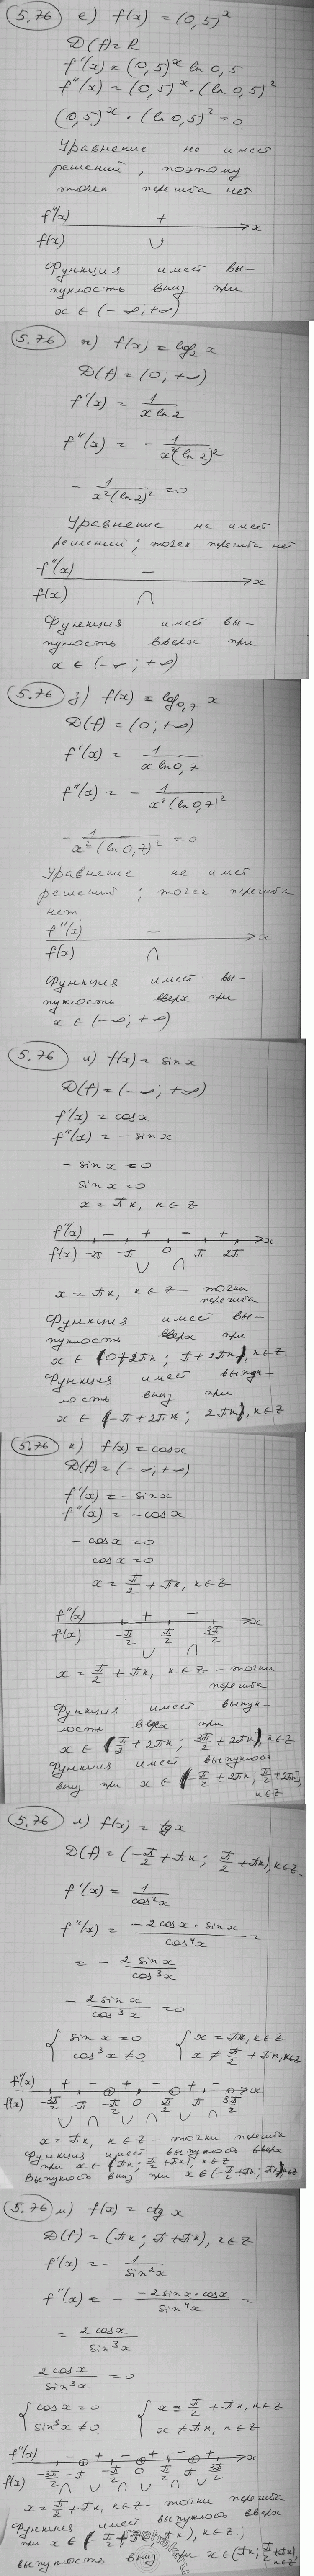 5.76 е) f(x) = (0,5)^x
D(f) = R
f'(x) = (0,5)^x ln 0,5
f''(x) = (0,5)^x · (ln 0,5)^2
(0,5)^x · (ln 0,5)^2 = 0
Уравнение не имеет
решений, поэтому
точек перегиба нет
f''(x) + x
f(x) ∪
Функция имеет вы-
пуклость вниз при
x ∈ (-∞; +∞)
5.76 ж) f(x) = log_2 x
D(f) = (0; +∞)
f'(x) = 1/(x ln 2)
f''(x) = - 1/(x^2 (ln 2)^2)
- 1/(x^2 (ln 2)^2) = 0
Уравнение не имеет
решений; точек перегиба нет
f''(x) - x
f(x) ∩
Функция имеет вы-
пуклость вверх при
x ∈ (-∞; +∞)
5.76 з) f(x) = log_0,7 x
D(f) = (0; +∞)
f'(x) = 1/(x ln 0,7)
f''(x) = - 1/(x^2 (ln 0,7)^2)
- 1/(x^2 (ln 0,7)^2) = 0
Уравнение не имеет
решений; точек перегиба
нет
f''(x) - x
f(x) ∩
Функция имеет вы-
пуклость вверх при
x ∈ (-∞; +∞)
5.76 и) f(x) = sin x
D(f) = (-∞; +∞)
f'(x) = cos x
f''(x) = - sin x
- sin x = 0
sin x = 0
x = πk, k ∈ Z
f''(x) - + - + x
f(x) -2π -π 0 π 2π
∪ ∩
x = πk, k ∈ Z - точки
перегиба
Функция имеет вы-
пуклость вверх при
x ∈ (0+2πk; π+2πk), k ∈ Z.
Функция имеет выпук-
лость вниз при
x ∈ (-π+2πk; 2πk), k ∈ Z
5.76 к) f(x) = cos x
D(f) = (-∞; +∞)
f'(x) = - sin x
f''(x) = - cos x
- cos x = 0
cos x = 0
x = π/2 + πk, k ∈ Z
f''(x) + - x
f(x) -π/2 π/2 3π/2
∪ ∩
x = π/2 + πk, k ∈ Z - точки
перегиба
Функция имеет выпук-
лость вверх при
x ∈ (π/2 + 2πk; 3π/2 + 2πk), k ∈ Z
Функция имеет выпуклость
вниз при x ∈ (-π/2 + 2πk; π/2 + 2πk],
k ∈ Z
5.76 л) f(x) = tg x
D(f) = (-π/2 + πk; π/2 + πk), k ∈ Z.
f'(x) = 1/cos^2 x
f''(x) = (-2 cos x · sin x)/cos^4 x =
= - 2 sin x/cos^3 x
- 2 sin x/cos^3 x = 0
{ sin x = 0 { x = πk, k ∈ Z
cos^3 x ≠ 0 x ≠ π/2 + πk, k ∈ Z
f''(x) + - + - + - x
f(x) -3π/2 -π -π/2 0 π/2 π 3π/2
∪ ∩ ∪ ∩ ∪ ∩
x = πk, k ∈ Z - точки перегиба
Функция имеет выпуклость вверх
при x ∈ (πk; π/2 + πk), k ∈ Z
Выпуклость вниз при x ∈ (-π/2 + πk; πk), k ∈ Z
5.76 м) f(x) = ctg x
D(f) = (πk; π + πk), k ∈ Z
f'(x) = - 1/sin^2 x
f''(x) = - (-2 sin x · cos x)/sin^4 x =
= 2 cos x/sin^3 x
2 cos x/sin^3 x = 0
{ cos x = 0 { x = π/2 + πk, k ∈ Z
sin^3 x ≠ 0 x ≠ πk, k ∈ Z
f''(x) - + - + - + x
f(x) -3π/2 -π -π/2 0 π/2 π 3π/2
∩ ∪ ∩ ∪ ∩ ∪
x = π/2 + πk, k ∈ Z - точки перегиба
Функция имеет выпуклость вверх
при x ∈ (-π/2 + πk; πk), k ∈ Z;
выпуклость вниз при x ∈ (πk; π/2 + πk),
k ∈ Z